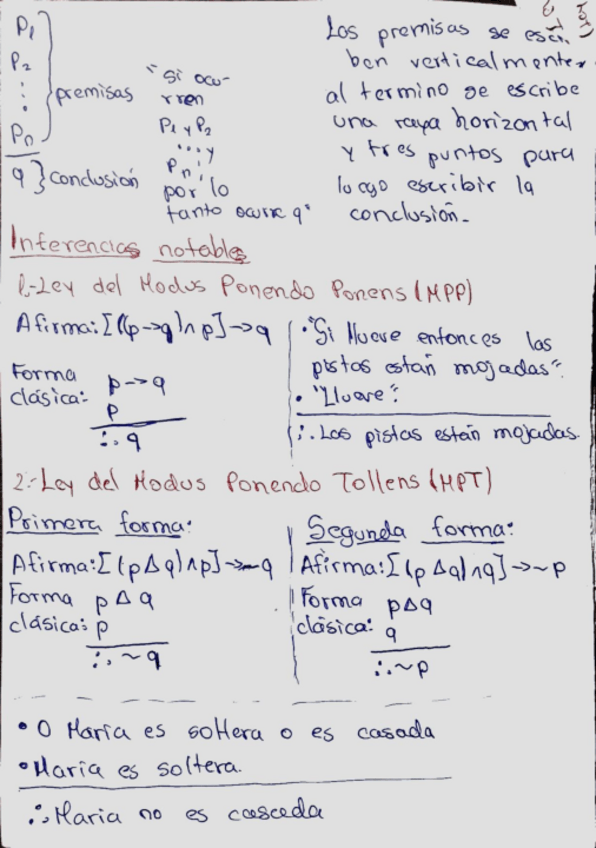 P₁
P₂
⋮
Pₙ
premisas
q } conclusión
"Si ocu-
rren
P₁ y P₂
... y
Pₙ,
por lo
tanto ocurre q"
Las premisas se escri
ben verticalmente,
al termino se escribe
una raya horizontal
y tres puntos para
luego escribir la
conclusión.
Inferencias notables
1.-Ley del Modus Ponendo Ponens (MPP)
Afirma: [(p→q)∧p]→q
Forma
clásica:
p→q
p
∴ q
• "Si llueve entonces las
pistas están mojadas".
• "Llueve".
∴ Las pistas están mojadas.
2.-Ley del Modus Ponendo Tollens (MPT)
Primera forma:
Afirma: [(p Δ q)∧p]→~q
Forma
clásica:
p Δ q
p
∴ ~q
Segunda forma:
Afirma: [(p Δ q)∧q]→~p
Forma
clásica:
p Δ q
q
∴ ~p
• O María es soltera o es casada
• Maria es soltera.
∴ Maria no es casada